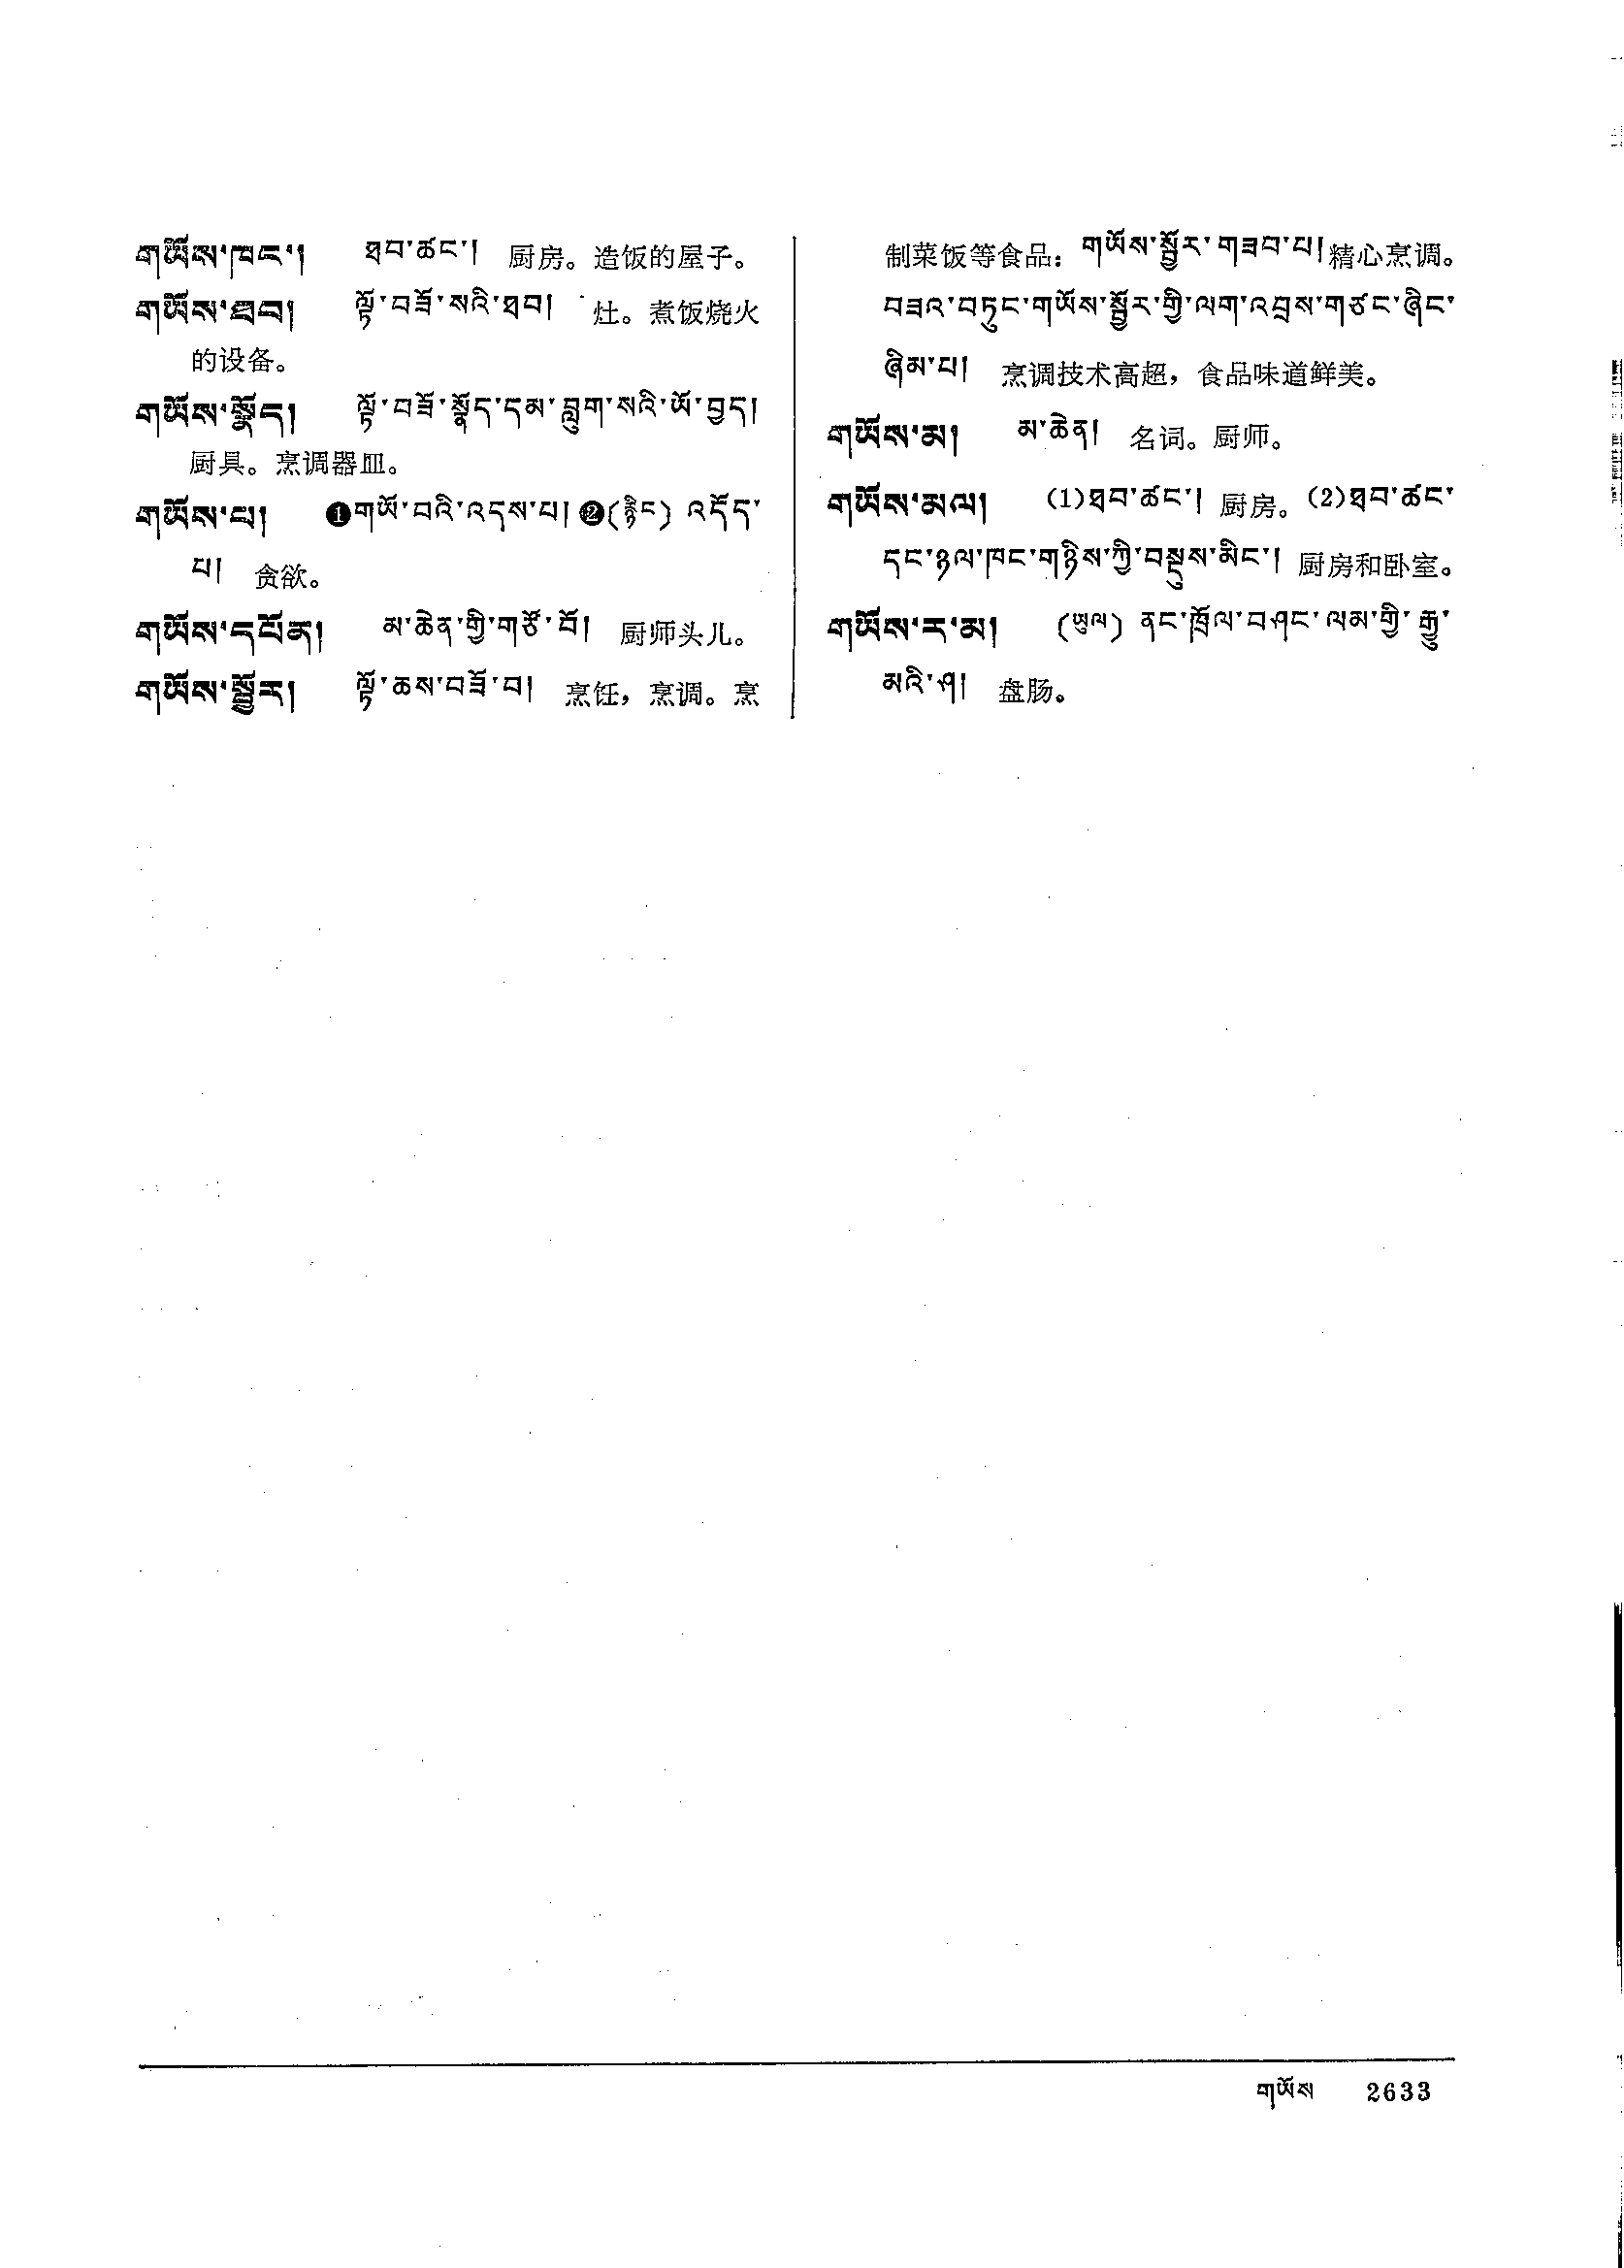 གཡོས་ཁང་། ཐབ་ཚང་། 厨房。造饭的屋子。
གཡོས་ཐབ། ལྟོ་བཟོ་སའི་ཐབ། 灶。煮饭烧火
的设备。
གཡོས་སྣོད། ལྟོ་བཟོ་སྣོད་དམ་བླུག་སའི་ཡོ་བྱད།
厨具。烹调器皿。
གཡོས་པ། ❶གཡོ་བའི་འདས་པ། ❷(རྙིང) འདོད་
པ། 贪欲。
གཡོས་དཔོན། མ་ཆེན་གྱི་གཙོ་བོ། 厨师头儿。
གཡོས་སྦྱོར། ལྟོ་ཆས་བཟོ་བ། 烹饪，烹调。烹
制菜饭等食品：གཡོས་སྦྱོར་གཟབ་པ། 精心烹调。
བཟའ་བཏུང་གཡོས་སྦྱོར་གྱི་ལག་འབྲས་གཙང་ཞིང་
ཞིམ་པ། 烹调技术高超，食品味道鲜美。
གཡོས་མ། མ་ཆེན། 名词。厨师。
གཡོས་མལ། (1)ཐབ་ཚང་། 厨房。(2)ཐབ་ཚང་
དང་ཉལ་ཁང་གཉིས་ཀྱི་བསྡུས་མིང་། 厨房和卧室。
གཡོས་ར་མ། (ཡུལ) ནང་ཁྲོལ་བཤང་ལམ་གྱི་རྒྱུ་
མའི་ཤ། 盘肠。
གཡོས 2633